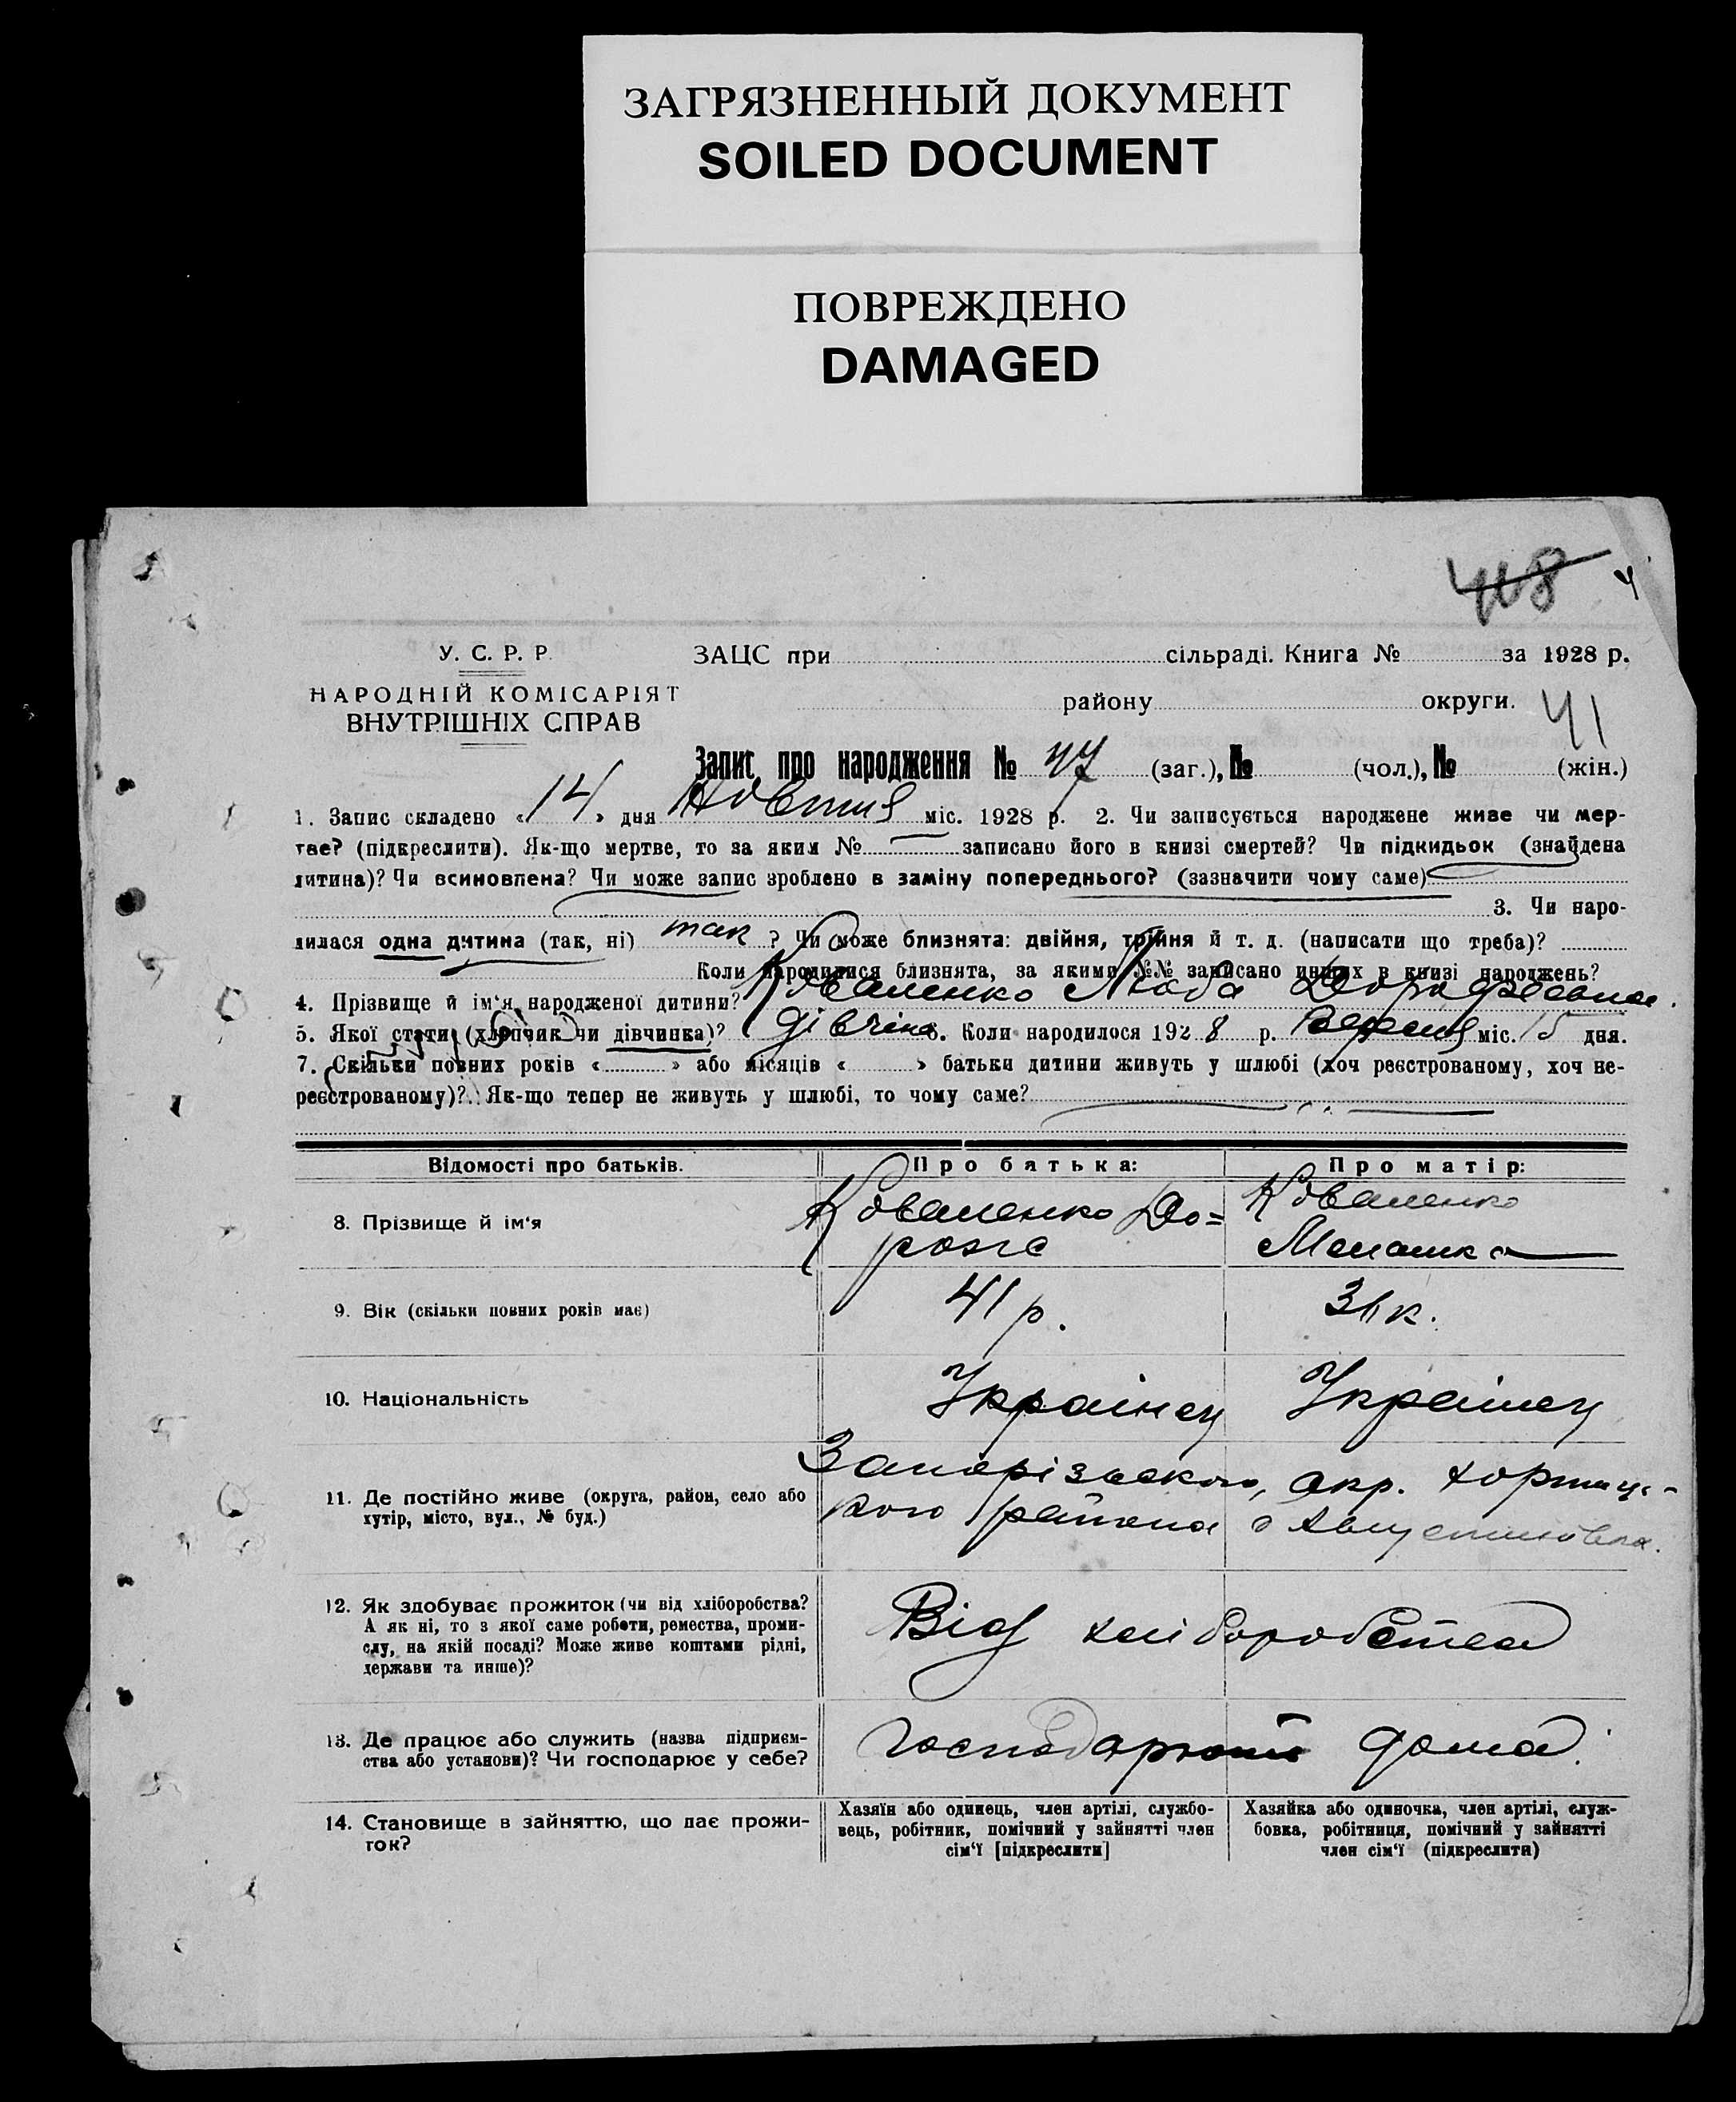 ЗАГРЯЗНЕННЫЙ ДОКУМЕНТ
SOILED DOCUMENT
ПОВРЕЖДЕНО
DAMAGED
У. С. Р. Р.
НАРОДНІЙ КОМІСАРІЯТ
ВНУТРІШНІХ СПРАВ
ЗАЦС при сільраді. Книга № за 1928 р.
району округи. 41
Запис про народження № 47 (заг.), № (чол.), № (жін.)
1. Запис складено « 14 » дня Жовтня міс. 1928 р. 2. Чи записується народжене живе чи мер-
тве? (підкреслити). Як-що мертве, то за яким № записано його в книзі смертей? Чи підкидьок (знайдена
дитина)? Чи всиновлена? Чи може запис зроблено в заміну попереднього? (зазначити чому саме)
3. Чи наро-
дилася одна дитина (так, ні) так ? Чи може близнята: двійня, трійня й т. д. (написати що треба)?
Коли народилися близнята, за якими №№ записано инших в книзі народжень?
4. Прізвище й ім'я народженої дитини? Коваленко Люба
5. Якої стати (хлопчик чи дівчинка)? дівчина 6. Коли народилося 1928 р. Вересня міс. 15 дня.
7. Скільки повних років « » або місяців « » батьки дитини живуть у шлюбі (хоч реєстрованому, хоч не-
реєстрованому)? Як-що тепер не живуть у шлюбі, то чому саме?
Відомості про батьків. Про батька: Про матір:
8. Прізвище й ім'я Коваленко До= Коваленко
Меланка
9. Вік (скільки повних років має) 41 р.
10. Національність Українец Українец
11. Де постійно живе (округа, район, село або Запорізького, окр. Хортиць-
хутір, місто, вул., № буд.) кого района с Августиновка.
12. Як здобуває прожиток (чи від хліборобства? Від хліборобства
А як ні, то з якої саме роботи, ремества, проми-
слу, на якій посаді? Може живе коштами рідні,
держави та инше)?
13. Де працює або служить (назва підприєм- господарюють дома.
ства або установи)? Чи господарює у себе?
14. Становище в зайняттю, що дає прожи- Хазяїн або одинець, член артілі, службо- Хазяйка або одиночка, член артілі, служ-
ток? вець, робітник, помічний у зайнятті член бовка, робітниця, помічний у зайнятті
сім'ї [підкреслити] член сім'ї (підкреслити)